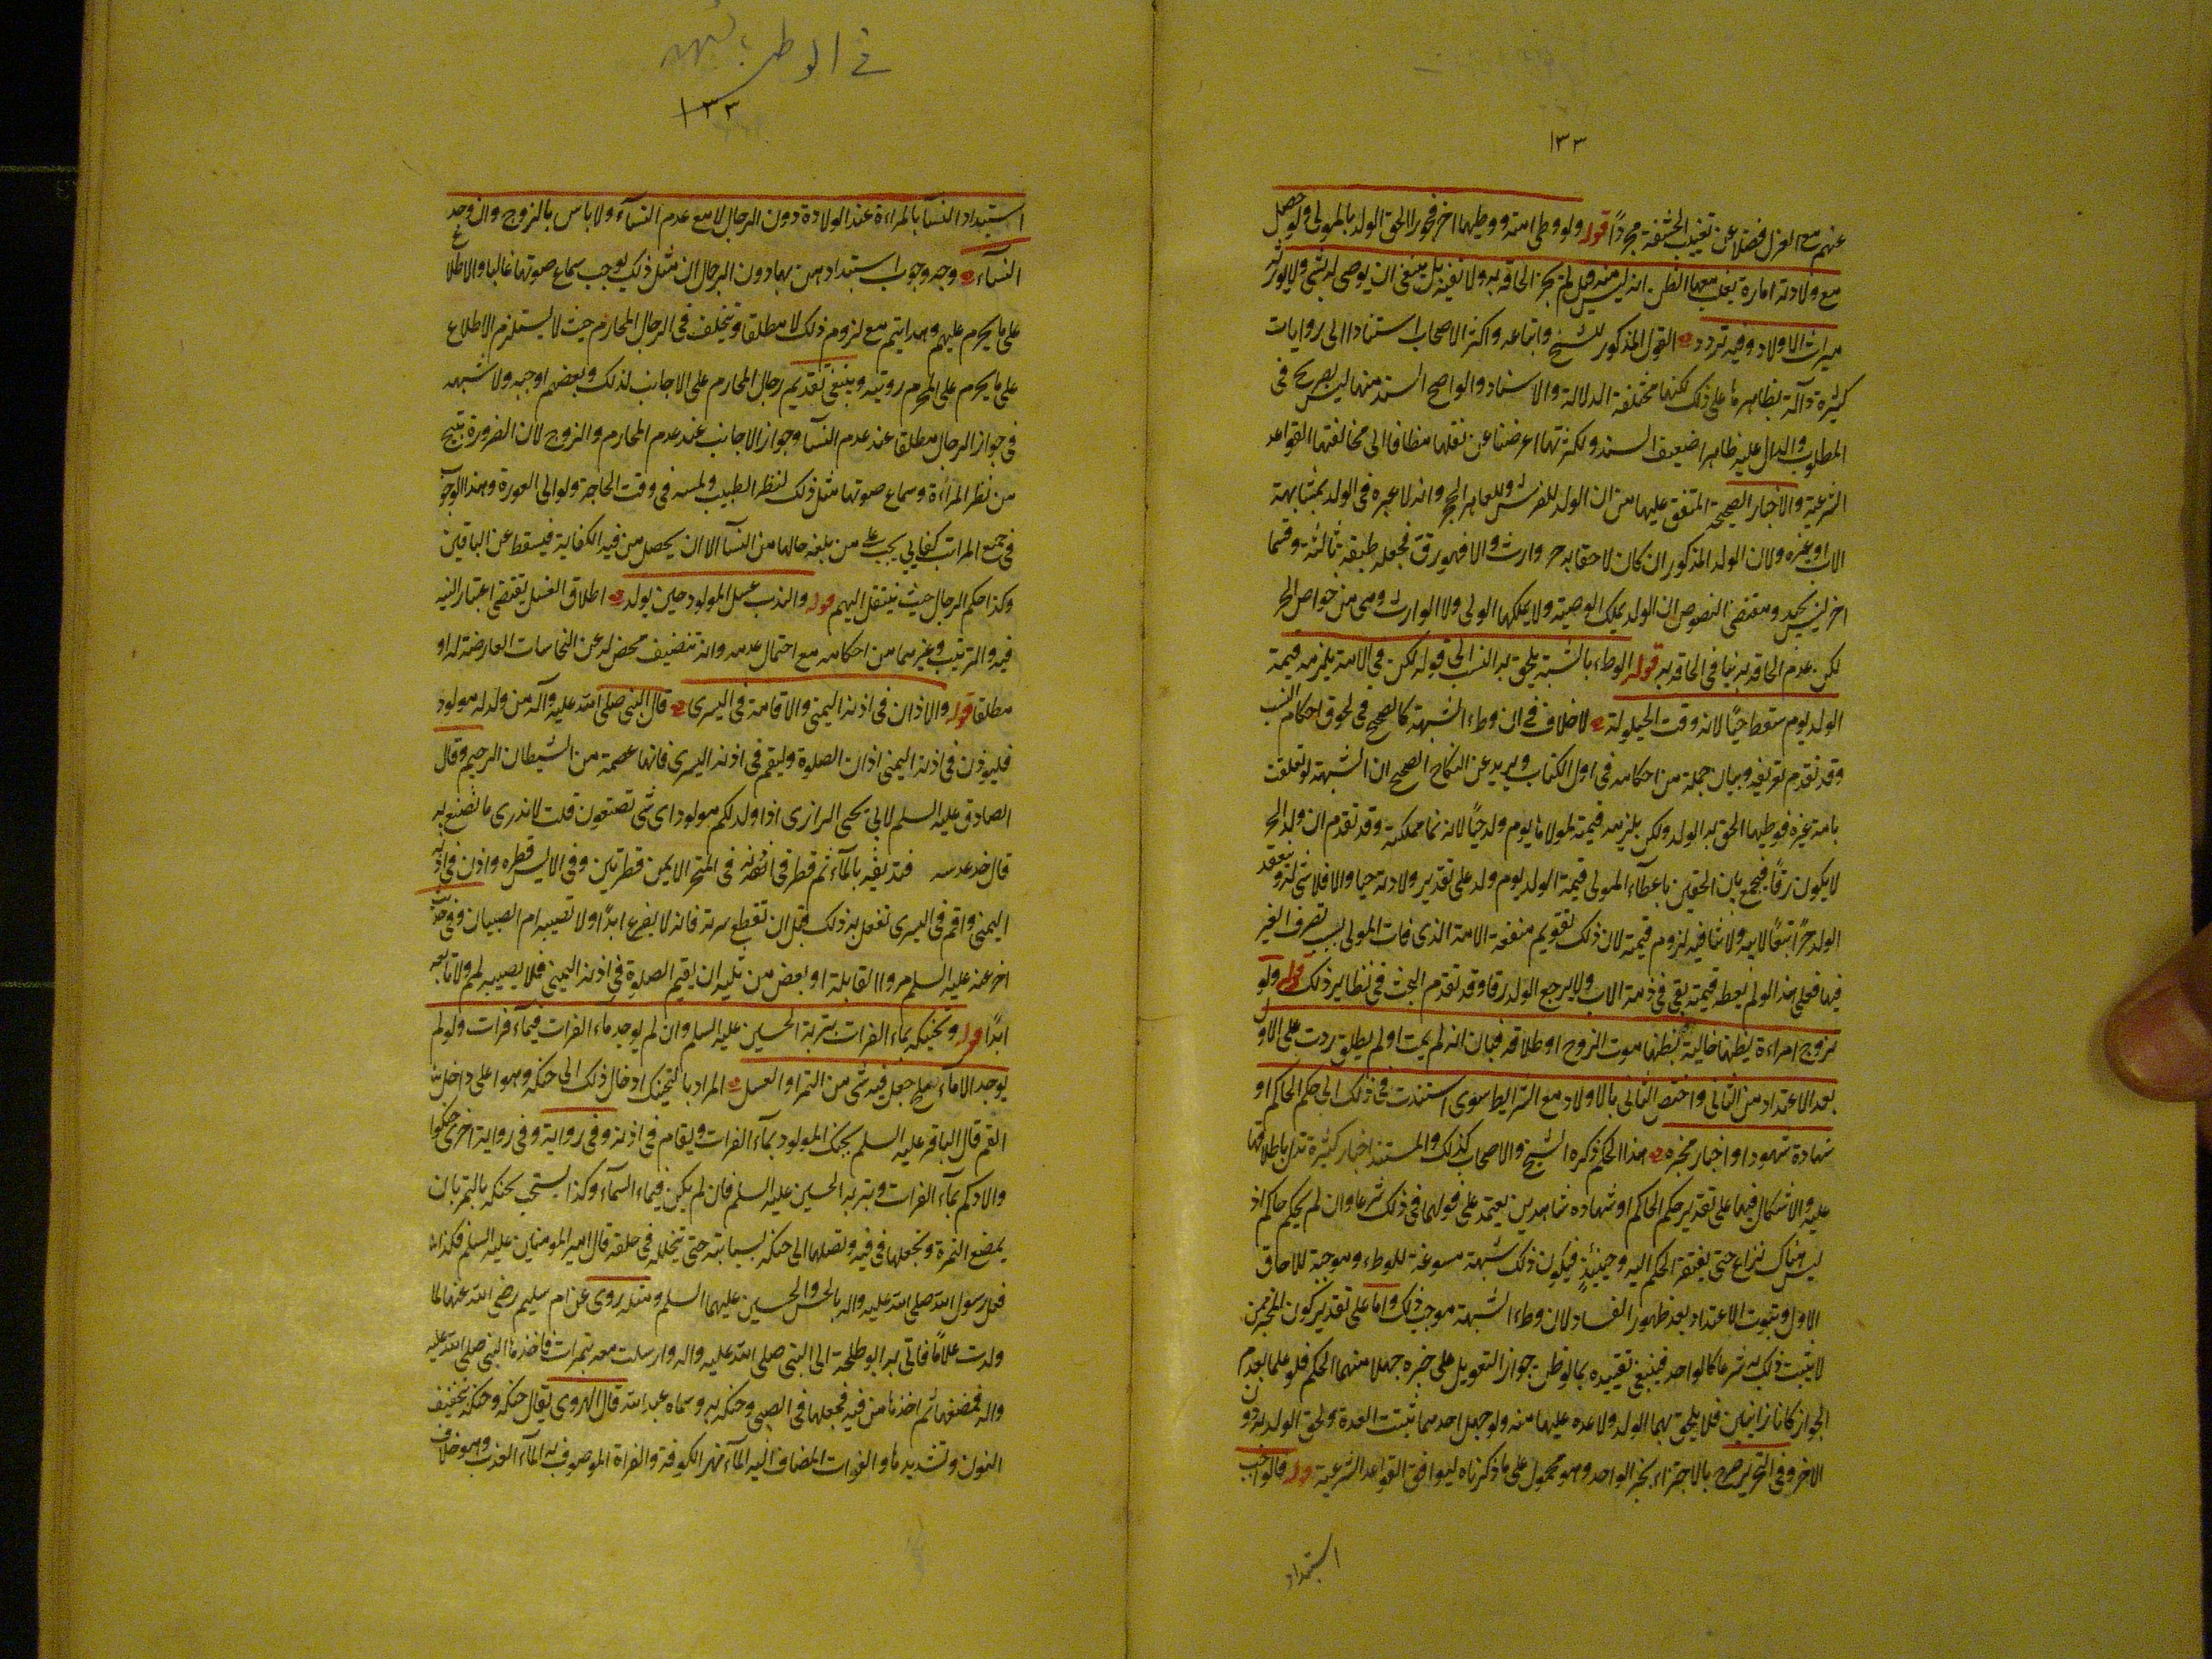 ١٣٣
عنهم مع العزل فضلا عن تغيب الحشفة مجردًا قوله ولو وطى امته ووطيها اخر فجورا الحق الولد بالمولى ولو حصل
مع ولادته امارة يغلب معها الظن انه ليس منه قيل لم يجز الحاقه به ولا نفيه بل ينبغى ان يوصى له بشى ولا يورثه
ميراث الاولاد وفيه تردد القول المذكور للشيخ واتباعه واكثر الاصحاب استنادا الى روايات
كثيرة دآلة بظاهرها على ذلك لكنها مختلفة الدلالة والاسناد والواضح السند منها ليس بصريح فى
المطلوب والدال عليه ظاهرا ضعيف السند ولكثرتها اعرضنا عن نقلها مضافا الى مخالفتها القواعد
الشرعية والاخبار الصحيحة المتفق عليها من ان الولد للفراش وللعاهر الحجر وانه لا عبره فى الولد بمشابهة
الاب او غيره ولان الولد المذكور ان كان لاحقا به حر وارث والا فهو رق فجعله طبقة ثالثة وقسما
اخر ليس بجيد ومقتضى النصوص ان الولد يملك الوصية ولا يملكها الولى ولا الوارث وهى من خواص الحر
لكن عدم الحاقه به ينافى الحاقه به قوله الوطء بالشبة يلحق به النسب الى قوله لكن فى الامة يلزمه قيمة
الولد يوم سقط حيًا لانه وقت الحيلولة لا خلاف فى ان وطء الشبهة كالصحيح فى لحوق احكام النسب
وقد تقدم تعريفه وبيان جملة من احكامه فى اول الكتاب ويزيد عن النكاح الصحيح ان الشبهة لو تعلقت
بامة غيره فوطيها الحق به الولد ولكن يلزمه قيمته لمولاها يوم ولد حيًا لانه نما مملكته وقد تقدم ان ولد الحر
لا يكون رقًا فيجمع بين الحقين باعطآء المولى قيمة الولد يوم ولد على تقدير ولادته حيا والا فلا شى له وينعقد
الولد حرًا تبعًا لابيه ولا ينافيه لزوم قيمته لان ذلك تقويم منفعة الامة الذى فات المولى بسبب تصرف الغير
فيها فعلى هذا لو لم يعطه قيمته بقى فى ذمة الاب ولا يرجع الولد رقا وقد تقدم البحث فى نظاير ذلك قوله ولو
تزوج امراءة يظنها خالية لظنها موت الزوج او طلاقه فبان انه لم يمت او لم يطلق ردت على الاول
بعد الاعتداد من الثانى واختص الثانى بالاولاد مع الشرايط سوى استندت فى ذلك الى حكم الحاكم او
شهادة شهود او اخبار مخبره هذا الحكم ذكره الشيخ والاصحاب كذلك والمستند اخبار كثيرة تدل باطلاقها
عليه والاشكال فيها على تقدير حكم الحاكم او شهاده شاهدين يعتمد على قولهما فى ذلك شرعا وان لم يحكم حاكم اذ
ليس هناك نزاع حتى يفتقر الحكم اليه وحينيذٍ فيكون ذلك شبهة مسوغة للوطء وموجبة للاحاق
الاول وثبوت الاعتداد بعد ظهور الفساد لان وطء الشبهة موجب ذلك واما على تقدير كون المخبر ممن
لا يثبت ذلك به شرعا كالواحد فينبغى تقييده بما لو ظن جواز التعويل على خبره جهلا منهما الحكم فلو علما بعدم
الجواز كانا زانيين فلا يلحق بهما الولد ولا عده عليها منه ولو جهل احدهما ثبتت العدة ولحق الولد به دون
الاخر وفى التحرير صرح بالاجتزاء بخبر الواحد وهو محمول على ما ذكرناه ليوافق القواعد الشرعية قوله فالواجب
استبداد
فى الوطى بشبهه
١٣٣
استبداد النسآ بالمراءة عند الولادة دون الرجال لا مع عدم النسآء ولا باس بالزوج وان وجد
النسآء وجه وجوب استبدادهن بها دون الرجال ان مثل ذلك يوجب سماع صوتها غالبا والاطلاع
على ما يحرم عليهم وهذا يتم مع لزوم ذلك لا مطلقا ويتخلف فى الرجال المحارم حيث لا يستلزم الاطلاع
على ما يحرم على المحرم رويته وينبغى تقديم رجال المحارم على الاجانب لذلك وبعضهم اوجبه ولا شبهه
فى جواز الرجال مطلقا عند عدم النسآ وجواز الاجانب عند عدم المحارم والزوج لان الضرورة تبيح
من نظر المراءة وسماع صوتها مثل ذلك لنظر الطبيب ولمسه فى وقت الحاجة ولو الى العورة وهذا الوجوب
فى جميع المرات كفايى يجب على من بلغه حالها من النسآ الا ان يحصل من فيه الكفاية فيسقط عن الباقين
وكذا حكم الرجال حيث ينتقل اليهم قوله والندب غسل المولود حين يولد اطلاق الغسل يقتضى اعتبار النيه
فيه والترتيب وغيرهما من احكامه مع احتمال عدمه وانه تنضيف محض له عن النجاسات العارضة له او
مطلقا قوله والاذان فى اذنه اليمنى والاقامة فى اليسرى قال النبى صلى الله عليه وآله من ولد له مولود
فليوذن فى اذنه اليمنى اذان الصلوة وليقم فى اذنه اليسرى فانها عصمة من الشيطان الرجيم وقال
الصادق عليه السلم لابى يحيى الرازى اذا ولد لكم مولود اى شى تصنعون قلت لا ندرى ما نصنع به
قال خذ عدسه فدیفه بالمآء ثم قطر فى انفه فى المنخر الايمن قطرتين وفى الايسر قطره واذن فى اذنه
اليمنى واقم فى اليسرى تفعل به ذلك قبل ان تقطع سرته فانه لا يفزع ابدًا ولا تصيبه ام الصبيان وفى حديث
اخر عنه عليه السلم مروا القابلة او بعض من تليه ان يقيم الصلوة فى اذنه اليمنى فلا يصيبه لمم ولا تابعه
ابدًا قوله وتحنيكه بماء الفرات بتربة الحسين عليه السلم وان لم يوجد ماء الفرات فيمآء فرات ولو لم
يوجد الا ماء ملح جعل فيه شى من التمر او العسل المراد بالتحنيك ادخال ذلك الى حنكه وهو اعلى داخل
الفم قال الباقر عليه السلم يحنك المولود بمآء الفرات ويقام فى اذنه وفى رواية وفى رواية اخرى حنكوا
والادكم بمآء الفرات وبتربه الحسين عليه السلم فان لم يكن فبماء السمآء وكذا يستحب تحنكه بالتمر بان
يمضغ التمرة وتجعلها فى فيه وتصلها الى حنكه بسبابته حتى تتخلله فى حلقه قال امير المومنين عليه السلم فكذا
فعل رسول الله صلى الله عليه واله بالحسن والحسين عليهما السلم ومثله روى عن ام سليم رضى الله عنها لما
ولدت غلامًا فاتى به ابو طلحة الى النبى صلى الله عليه واله وارسلت معه بتمرات فاخذها النبى صلى الله عليه
واله فمضغها ثم اخذها من فيه فجعلها فى الصبى وحنكه به وسماه عبد الله قال الهروى يقال حنكه وحنكه بتخفيف
النون وتشديدها والفرات المضاف اليه المآء نهر الكوفة والفراة الموصوف به المآء العذب وهو خلاف